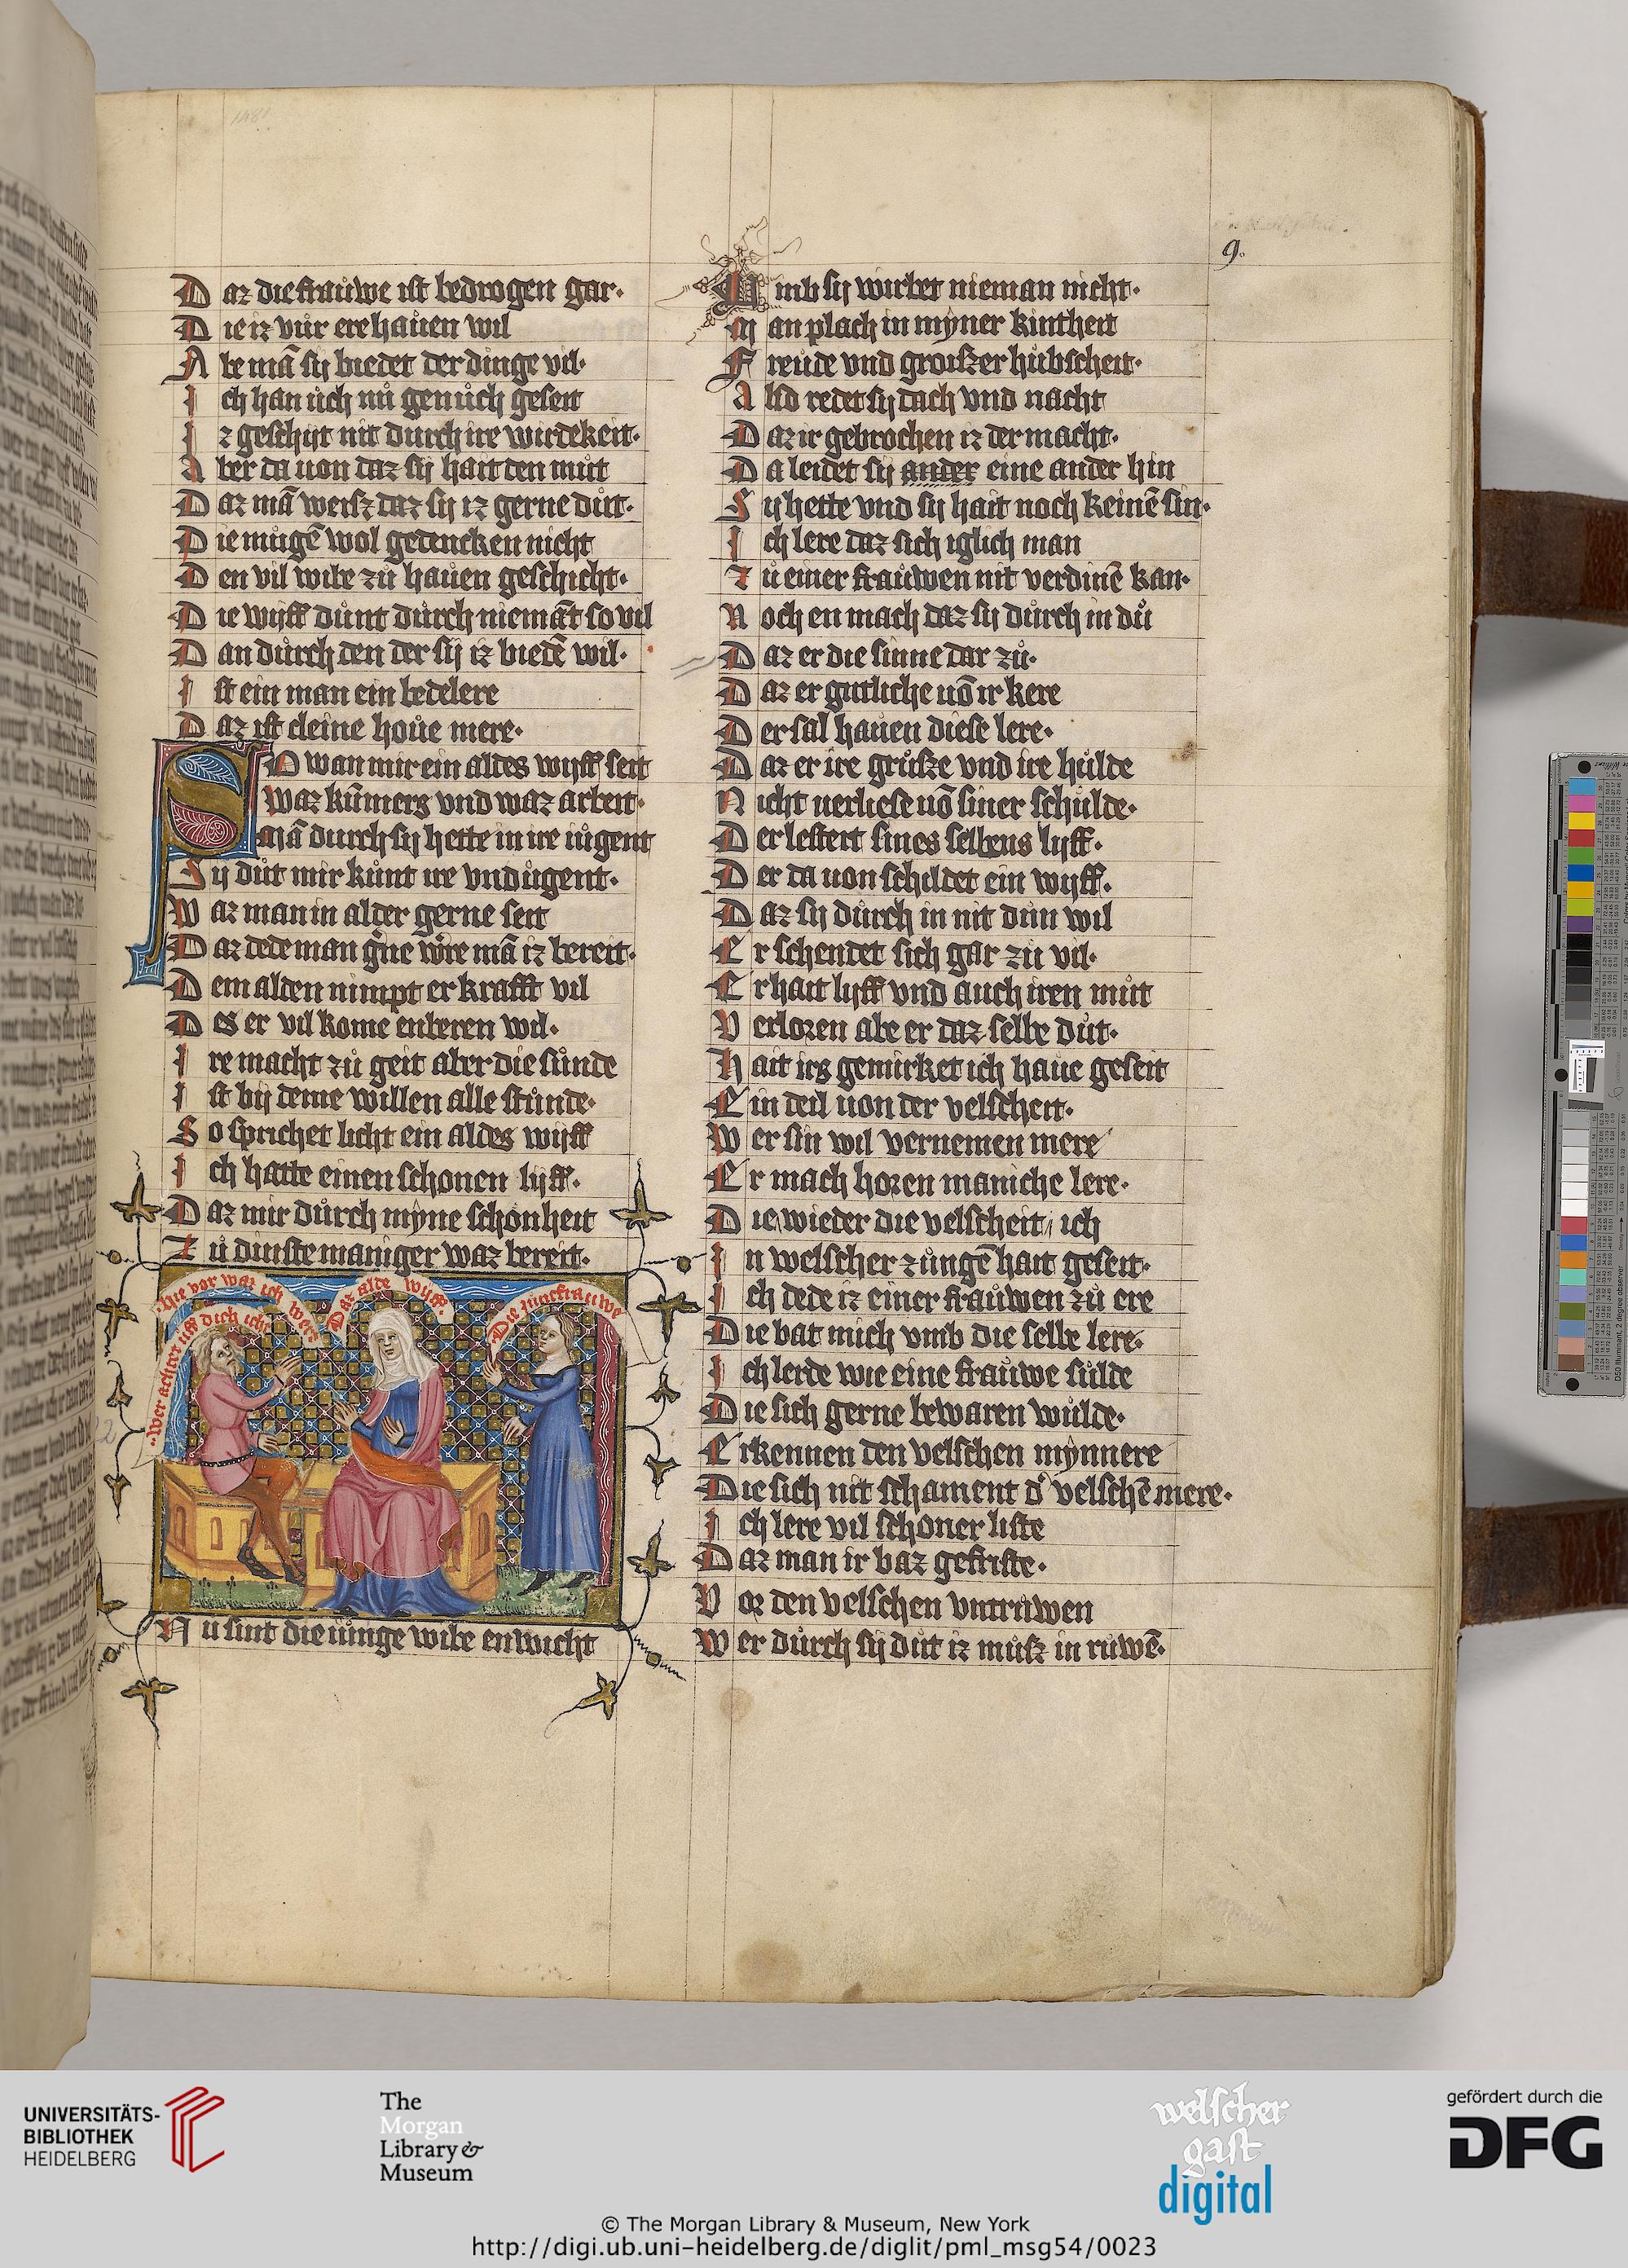 9.
Daz die frauwe ist bedrogen gar·
Die iz vur ere hauen wil
Abe mā sij biedet der dinge vil·
Ich han uch nu genuch geseit
Iz geschijt nit durch ire wirdekeit·
Aber da uon daz sij hait den mut
Daz mā weisz daz sij iz gerne dut·
Die mugē wol gedencken nicht
Den vil wibe zu hauen geschicht·
Die wijff dunt durch niemāt so vil
Dan durch den der sij iz biedē wil·
Ist ein man ein bedelere
Daz ist cleine houe mere·
Swan mir ein aldes wijff seit
Waz kūmers vnd waz arbeit·
Mā durch sij hette in ire iugent
Sij dut mir kunt ire vndugent·
Waz man in alder gerne seit
Daz dede man gne were mā iz bereit·
Dem alden nimpt er krafft vil
Des er vil kome enberen wil·
Ire macht zu geit aber die sunde
Ist bij deme willen alle stunde·
So sprichet licht ein aldes wijff
Ich hatte einen schonen lijff·
Daz mir durch myne schonheit
Zu dinste maniger waz bereit·
Wer achtet uff dich icht
Hie vor waz ich wert
Daz alde wijff·
Die iunckfrauwe
Nu sint die iunge wibe enwicht
Vmb sij wirbet nieman nicht·
Man plach in myner kintheit
Freude vnd groiszer hubscheit·
Also redet sij dach vnd nacht
Daz ir gebrochen iz der macht·
Da leidet sij ander eine ander hin
Sij hette vnd sij hait noch keinē sin·
Ich lere daz sich iglich man
Zu einer frauwen nit verdinē kan·
Noch en mach daz sij durch in du
Daz er die sinne dar zu·
Daz er gutliche uō ir kere
Der sal hauen diese lere·
Daz er ire grusze vnd ire hulde
Nicht uerliese uō siner schulde·
Der lestert sines selbens lijff·
Der da uon schildet ein wijff·
Daz sij durch in nit dun wil
Er schendet sich gar zu vil·
Er hait lijff vnd auch iren mut
Verlozen abe er daz selbe dut·
Hait irs gemirket ich haue geseit
Ein deil uon der velscheit·
Wer sin wil vernemen mere
Er mach hozen maniche lere·
Die wieder die velscheit ich
In welscher zungē hait geseit·
Ich dede iz einer frauwen zu ere
Die bat mich vmb die selbe lere·
Ich lerde wie eine frauwe sulde
Die sich gerne bewaren wulde·
Erkennen den velschen mynnere
Die sich nit schament d' velschē mere·
Ich lere vil schoner liste
Daz man ir baz gefriste·
Voz den velschen vntruwen
Wer durch sij dut iz musz in ruwē·
UNIVERSITÄTS-
BIBLIOTHEK
HEIDELBERG
The
Morgan
Library &
Museum
welscher
gast
digital
gefördert durch die
DFG
© The Morgan Library & Museum, New York
http://digi.ub.uni-heidelberg.de/diglit/pml_msg54/0023